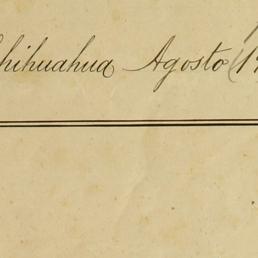 Chihuahua Agosto